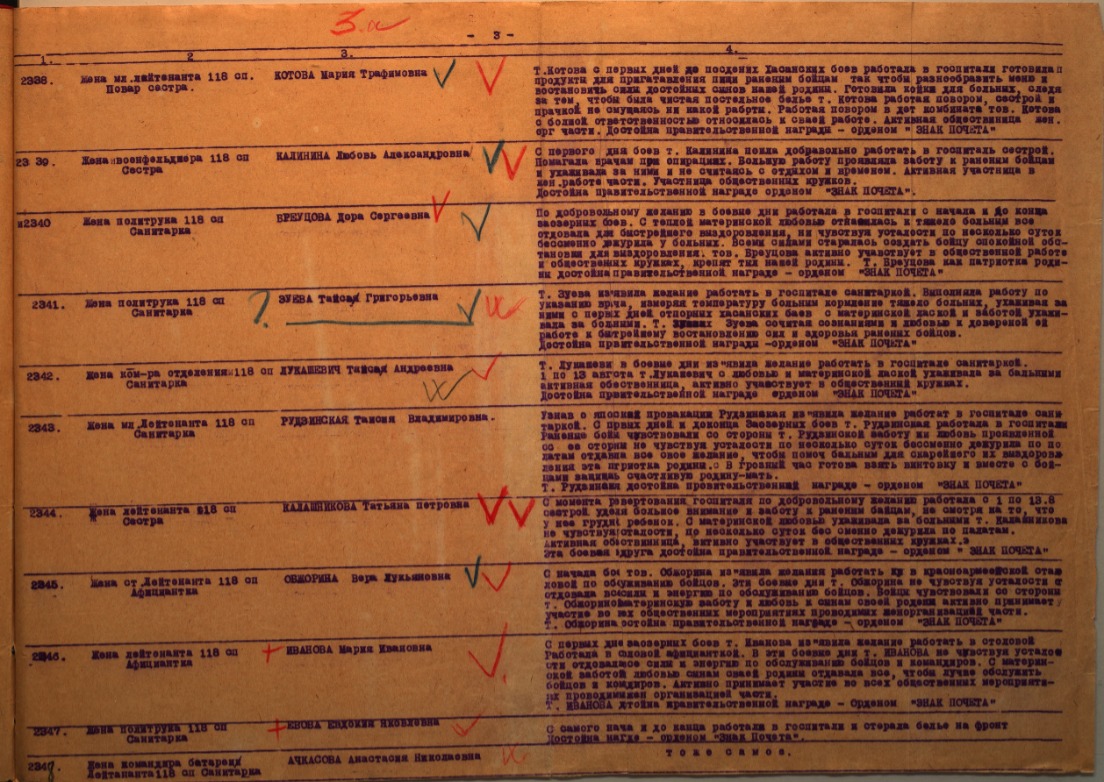 3.а
- 3 -
1. 2 3. 4.
2338. Жена мл.лейтенанта 118 сп. КОТОВА Мария Трафимовна Т.Котова с первых дней до последних Хасанских боев работала в госпитали готовила
Повар сестра. продукты для пригатавления пищи раненым бойцам так чтобы разнообразить меню и
востановить силы достойных синов нашей родины. Готовила койки для больных, следя
за тем, чтобы была чистая постельное белье т. Котова работая повором, сестрой и
прачкой не смущаясь ни какой работы. Работая поворм в дет комбината тов. Котова
с болной ответственностью относилась к своей работе. Активная общественица жен.
орг части. Достойна правительственной награди - орденом " ЗНАК ПОЧЕТА"
23 39. Жена военфельдшера 118 сп КАЛИНИНА Любовь Александровна С первого дня боев т. Калинина пошла добравольно работать в госпиталь сестрой.
Сестра Помагала врачам при опирациях. Большую работу проявляла заботу к раненым бойцам
и ухаживала за ними и не считаясь с отдыхом и временем. Активная участница в
жен.работе части. Участница общественных кружков.
Достойна правительственной награде орденом "ЗНАК ПОЧЕТА".
2340 Жена политрука 118 сп ВРЕУЦОВА Дора Сергеевна По добровольному желанию в боевые дни работала в госпитали с начала и до конца
Санитарка заозерных боев. С теплой материнской любовью относилась к тяжело больным все
отдовала для быстрейшего выздоровления, ни чувствуя усталости по несколько суток
бессменно дежурила у больных. Всеми силами старалась создать бойцу спокойной обс-
тановки для выздоровления. тов. Бреуцова активно учавствует в общественной работе
и общественных кружках, крепят тил нашей родины. Т. Бреуцова как патриотка роди-
ни достойна правительственной награде - орденом "ЗНАК ПОЧЕТА"
2341. Жена политрука 118 сп ? ЗУЕВА Тайсая Григорьевна Т. Зуева из'явила желание работать в госпитале санитаркой. Выполняла работу по
Санитарка указанию врача, измеряя температуру больным кормление тяжело больных, ухаживая за
ними с первых дней отпорных хасанских баев с материнской лаской и заботой ухажи-
вала за больными. Т. Зуева сочитая сознаниями и любовью к довереной ей
работе к быстрейшему востановлению сил и здоровья раненых бойцов.
Достойна правительственной награди -орденом "ЗНАК ПОЧЕТА"
2342. Жена ком-ра отделения 118 сп ЛУКАШЕВИЧ Тайсая Андреевна Т. Лукашеви в боевые дни из'явила желание работать в госпитале санитаркой.
Санитарка 1 по 13 августа т.Лукашевич с любовью и материнской лаской ухаживала за бальными
активная обественница, активно учавствует в общественный кружках.
Достойна правительственной награде орденом "ЗНАК ПОЧЕТА"
2343. Жена мл.Лейтенанта 118 сп РУДЗИНСКАЯ Таисия Владимировна. Узнав о японской правакации Рудзинская из'явила желание работат в госпитале сани
Санитарка таркой. С првых дней и доконца Заозерных боев т. Рудзинская работала в госпитали
Раненые бойц чувствовали со стороны т. Рудзинской заботу их любовь проявленной
со ее сторон не чувствуя усталости по несколько суток бессменно дежурила по по
латам отдавна все свое желание, чтобы помоч бальным для скарейшего их выздоров
ления эта птриотка родины.с В грозный час готова взять винтовку и вместе с бой-
цами защищаь счастливую родину-мать.
Т. Рудзинкая достойна провительственнай награде - орденом "ЗНАК ПОЧЕТА"
2344. Жена лейтенанта 118 сп КАЛАШНИКОВА Татьяна петровна С момента ревертования госпиталя по добровольному желанию работала с 1 по 13.8
Сестра сестрой удели большое внимание и заботу к раненым байцам, не смотря на то, что
у нее грудн ребенок. С материнской любовью ухаживала за больными т. Калашникова
не чувствуя усталости, по несколько суток бес сменно дежурила по палатам.
Активная обественница, активно учавствует в общественных кружках.
Эта боевая одруга достойна правительственной награде - орденом " ЗНАК ПОЧЕТА"
2345. Жена ст.Лейтенанта 118 сп ОБЖОРИНА Вера Лукьяновна С начала боя тов. Обжорина из'явила желания работать в красноармейской стаа
Афициантка ловой по обсуживанию бойцов. Эти боевые дня т. Обжорина не чувствуя усталости с
отдовала все сили и энергию по обслуживанию бойцов. Бойцы чувствовали со стороны
т. Обжориной материнскую заботу и любовь к сынам своей родени активно принимает
участие во вех общественных мероприятиях проводимых женорганизацией части.
Т. Обжорина остойна правительственной награде - орденом "ЗНАК ПОЧЕТА"
2346. Жена лейтенанта 118 сп ИВАНОВА Мария Ивановна С первых дне заозерных боев т. Иванова из'явила желание работать в столовой
Афициантка Работала в словой афицианткой. В эти боевые дни т. ИВАНОВА не чувствуя усталос
сти отдовалаое силы и энергию по обслуживанию бойцов и командиров. С материн-
ской заботой любовью сынам сваей родини отдавала все, чтобы лучше обслужить
бойцов и комдиров. Активно принимает участие во всех общественных мероприяте-
ях проводимых жен организацией части.
Т. ИВАНОВА дтойна правительственной награде - Орденом "ЗНАК ПОЧЕТА"
2347. Жена политрука 118 сп ЕНОВА Евдомия Яковлевна С самого нача и до канца работали в госпитали и стерала белье на фронт
Санитарка Достойна нагде - орденом "Знак Почета".
2348. Жена командира батареи АЧКАСОВА Анастасия Николаевна Т о ж е с а м о е.
Лейтенанта 118 сп Санитарка